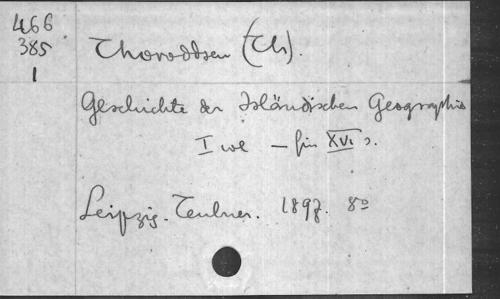 466
385
1
Thoroddsen (Th).
Geschichte der Isländischen Geographie
I vol — fin XVI s.
Leipzig. Teubner. 1897. 8°